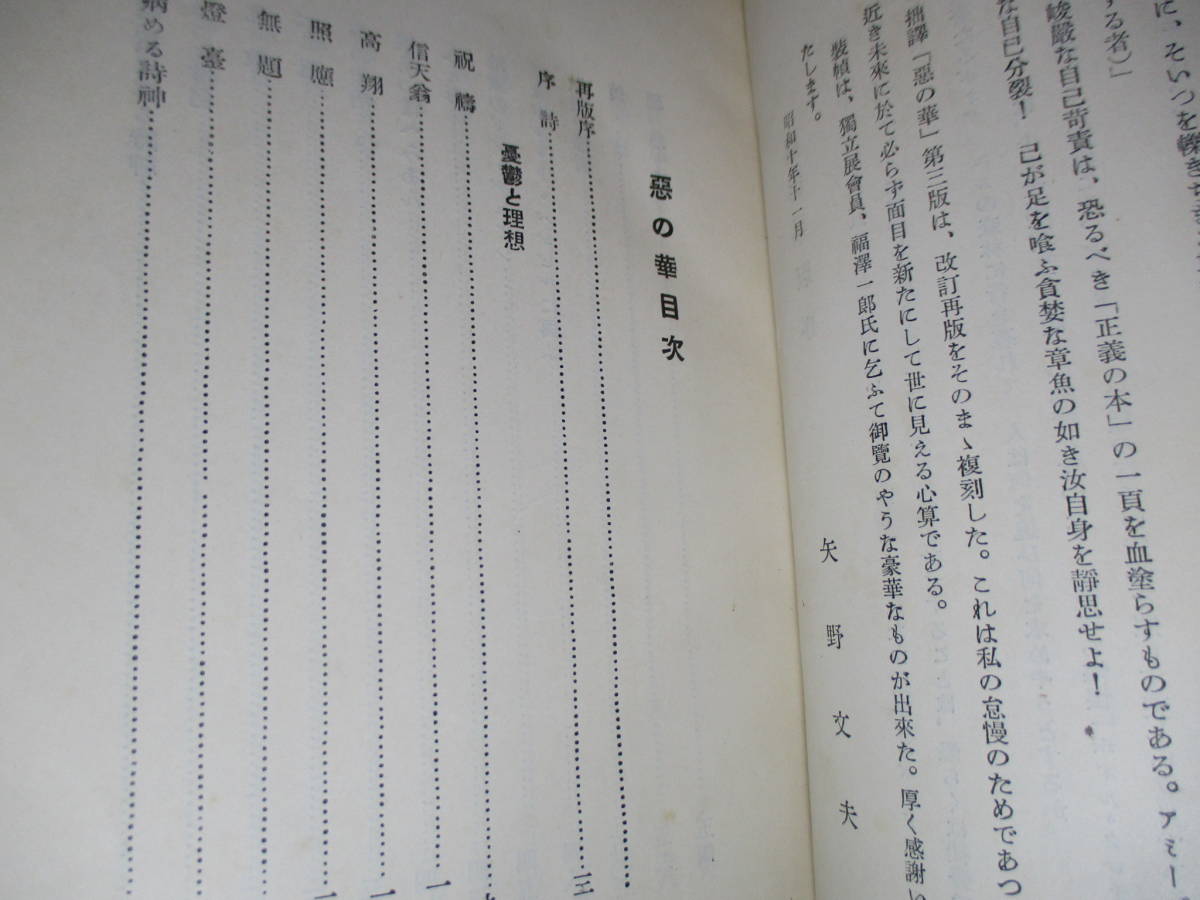 に、そいつを轢き
する者)」
峻嚴な自己苛責は、恐るべき「正義の本」の一頁を血塗らすものである。アミー
な自己分裂! 己が足を喰ふ貪婪な章魚の如き汝自身を靜思せよ!
拙譯「惡の華」第三版は、改訂再版をそのまゝ複刻した。これは私の怠慢のためであつ
近き未來に於て必らず面目を新たにして世に見える心算である。
裝幀は、獨立展會員、福澤一郎氏に乞ふて御覽のやうな豪華なものが出來た。厚く感謝し
たします。
昭和十年十一月
矢野文夫
惡の華目次
再版序
序詩 三
憂鬱と理想
祝禱
信天翁 一
高翔 一
照應 一
無題
燈臺
病める詩神